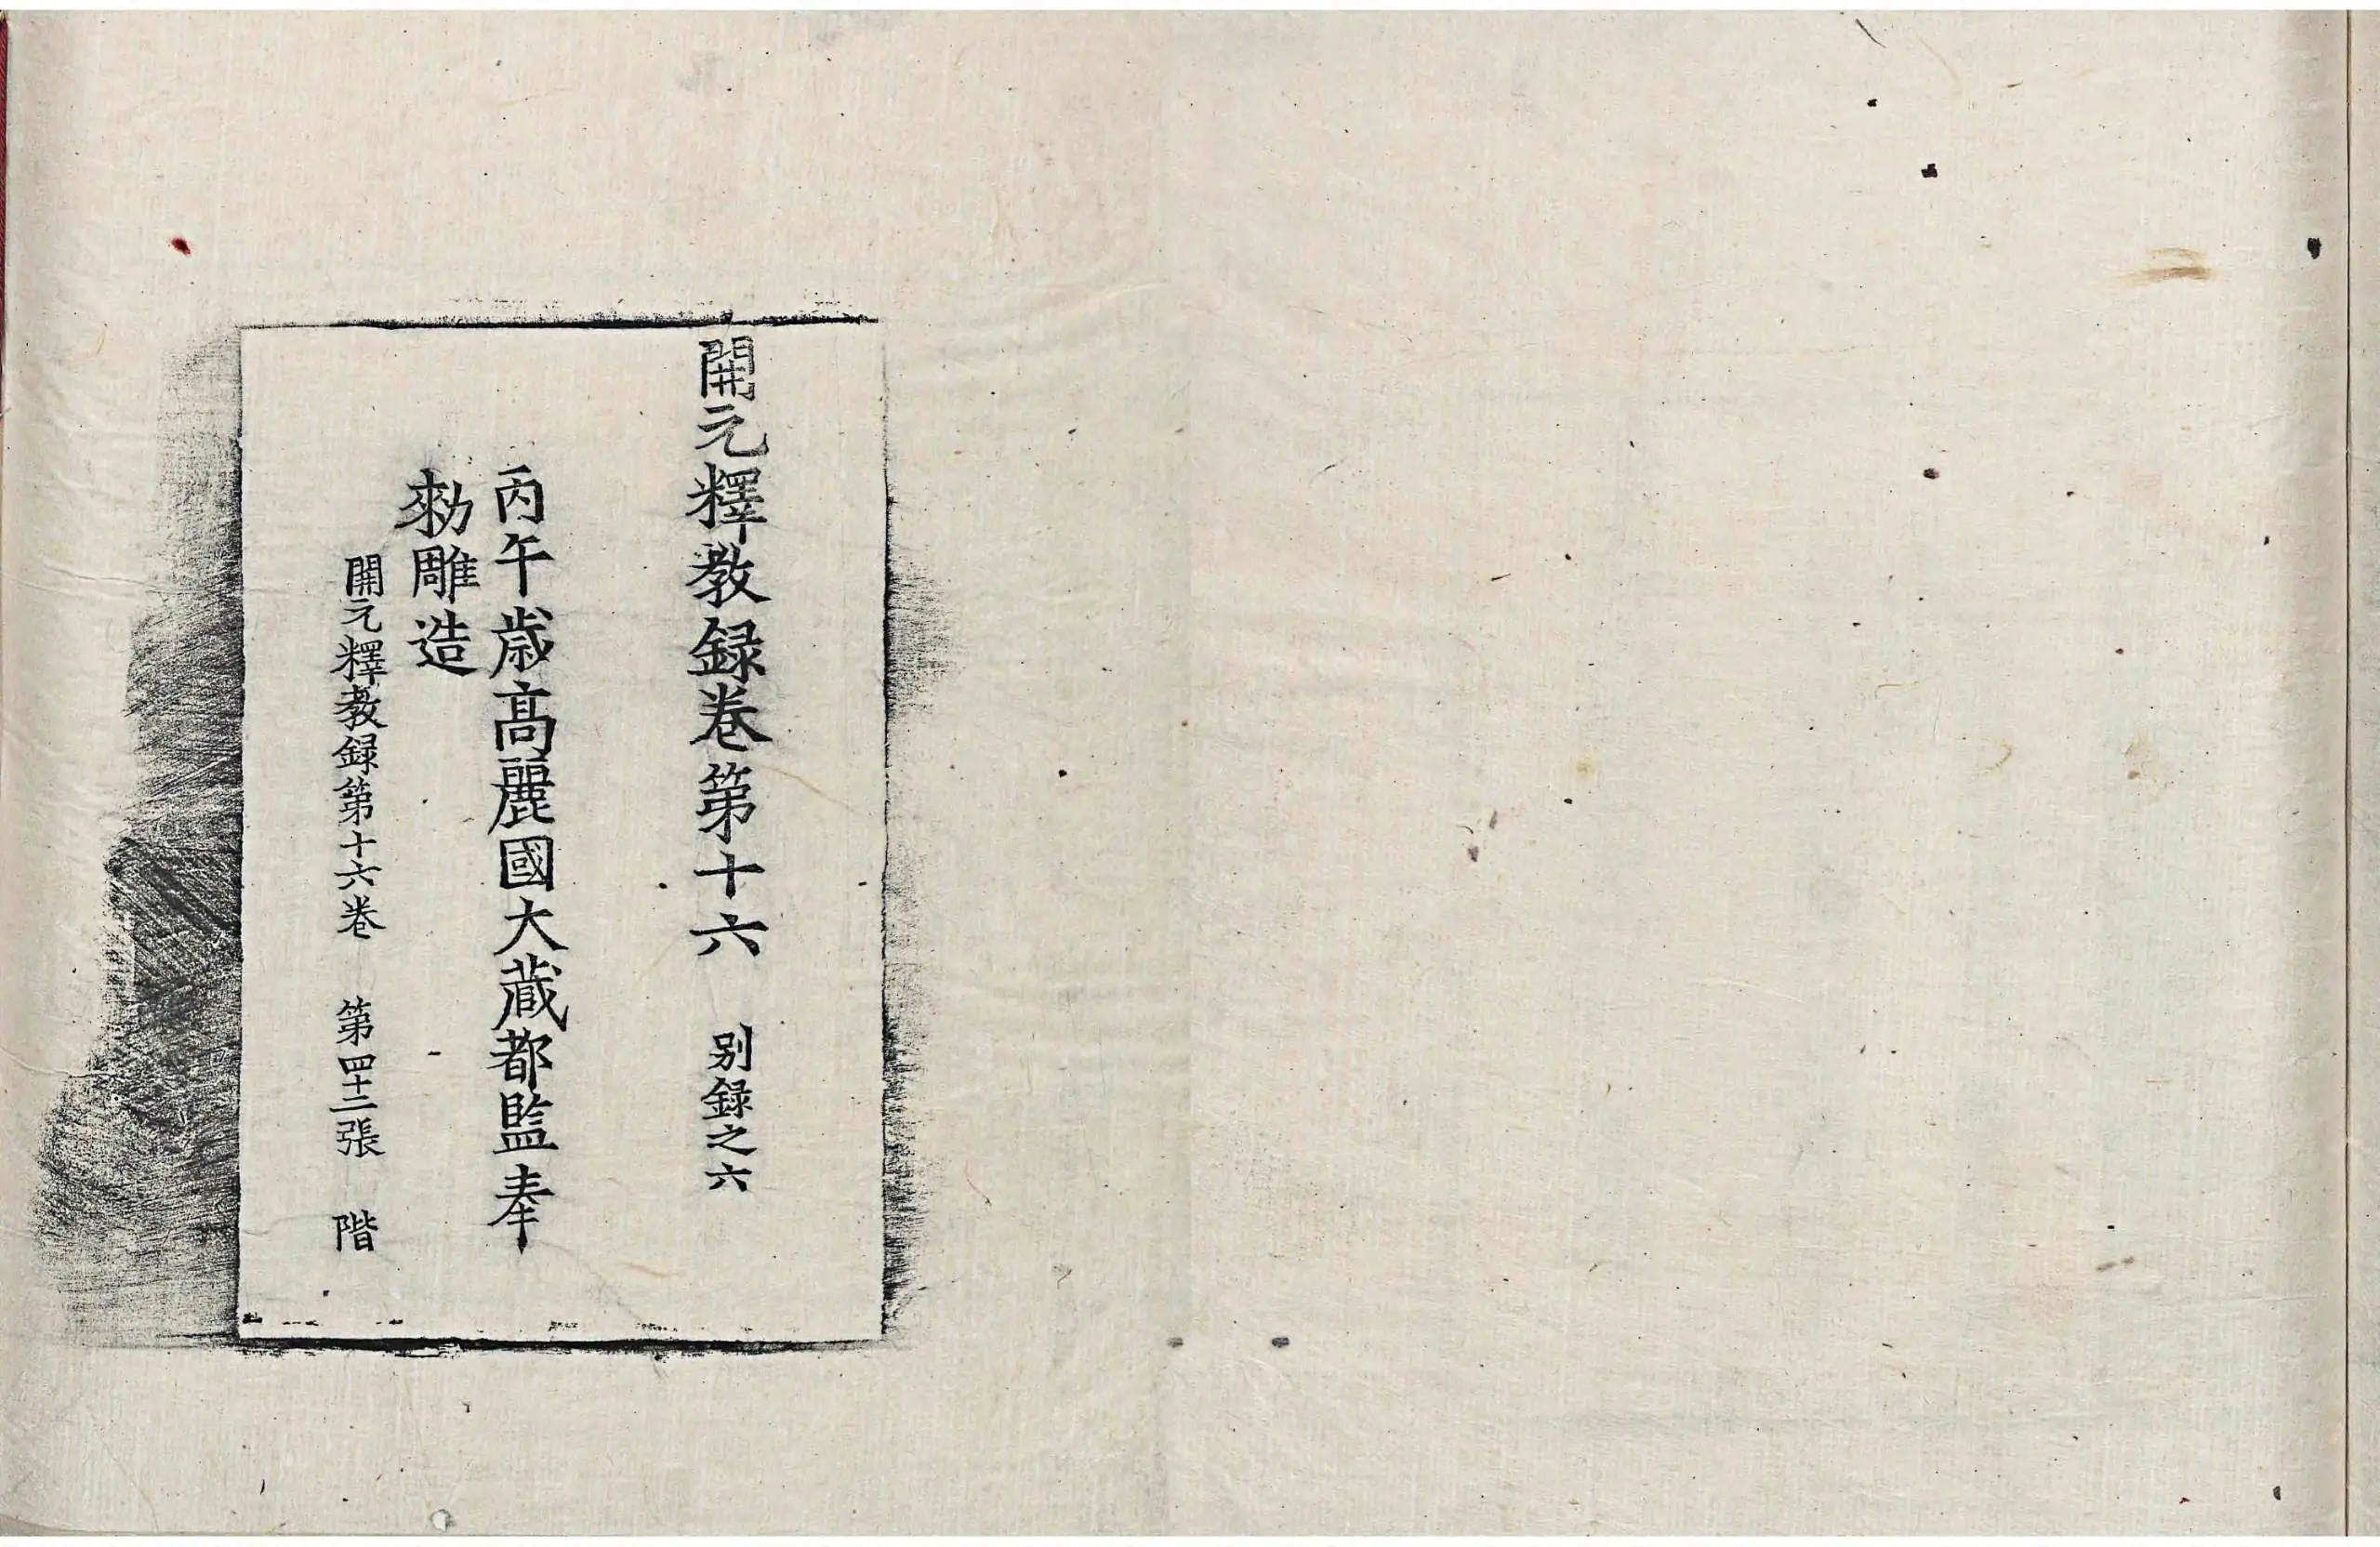 開元釋教録卷第十六 别録之六
丙午歲高麗國大藏都監奉
勑雕造
開元釋教録第十六卷 第四十二張 階